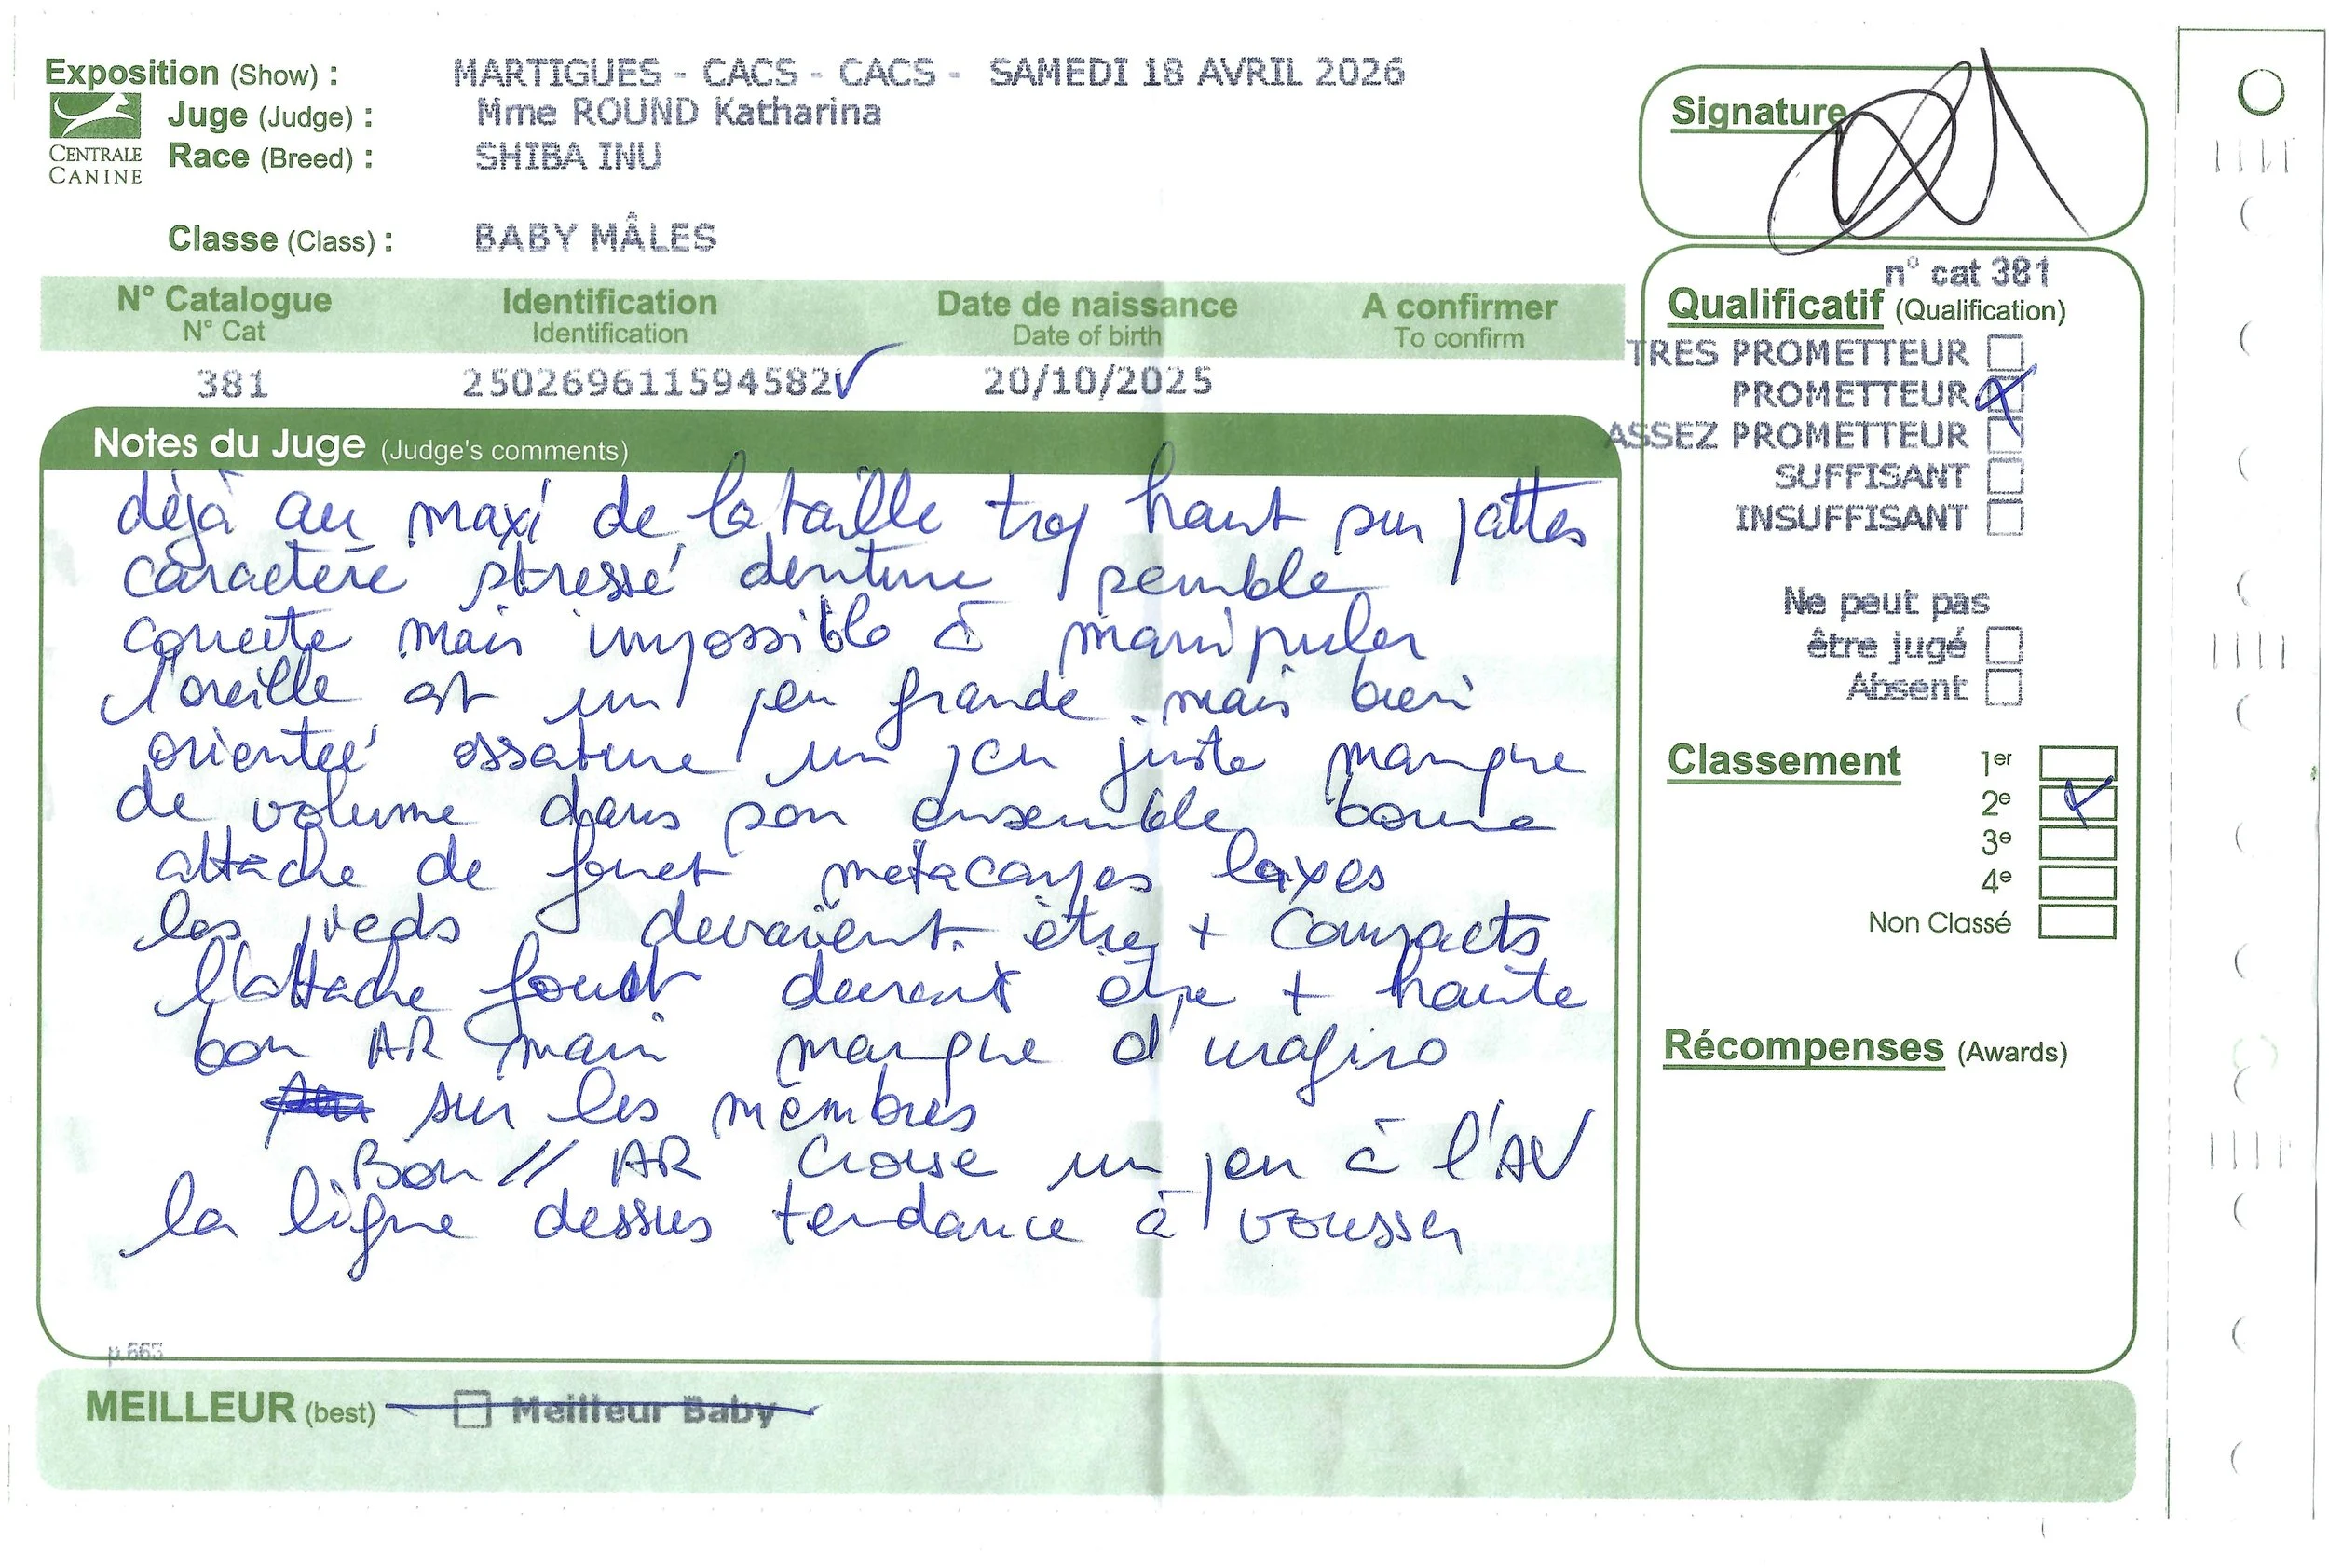 Exposition (Show) : MARTIGUES - CACS - CACS - SAMEDI 18 AVRIL 2026
CENTRALE CANINE
Juge (Judge) : Mme ROUND Katharina
Race (Breed) : SHIBA INU
Classe (Class) : BABY MÂLES
Signature
N° Catalogue Identification Date de naissance A confirmer
N° Cat Identification Date of birth To confirm
381 250269611594582 20/10/2025
Notes du Juge (Judge's comments)
déjà au maxi de la taille trop haut sur pattes
caractère stressé denture semble
correcte mais impossible à manipuler
l'oreille est un peu grande mais bien
orientée ossature un peu juste manque
de volume dans son ensemble bonne
attache de fouet métacarpes laxes
les pieds devraient être + compacts
l'attache fouet devrait être + haute
bon AR main manque d'
sur les membres
Bon // AR croise un peu à l'AV
la ligne dessus tendance à vousser
p.663
MEILLEUR (best) Meilleur Baby
n° cat 381
Qualificatif (Qualification)
TRES PROMETTEUR
PROMETTEUR
ASSEZ PROMETTEUR
SUFFISANT
INSUFFISANT
Ne peut pas
être jugé
Absent
Classement 1er
2e
3e
4e
Non Classé
Récompenses (Awards)